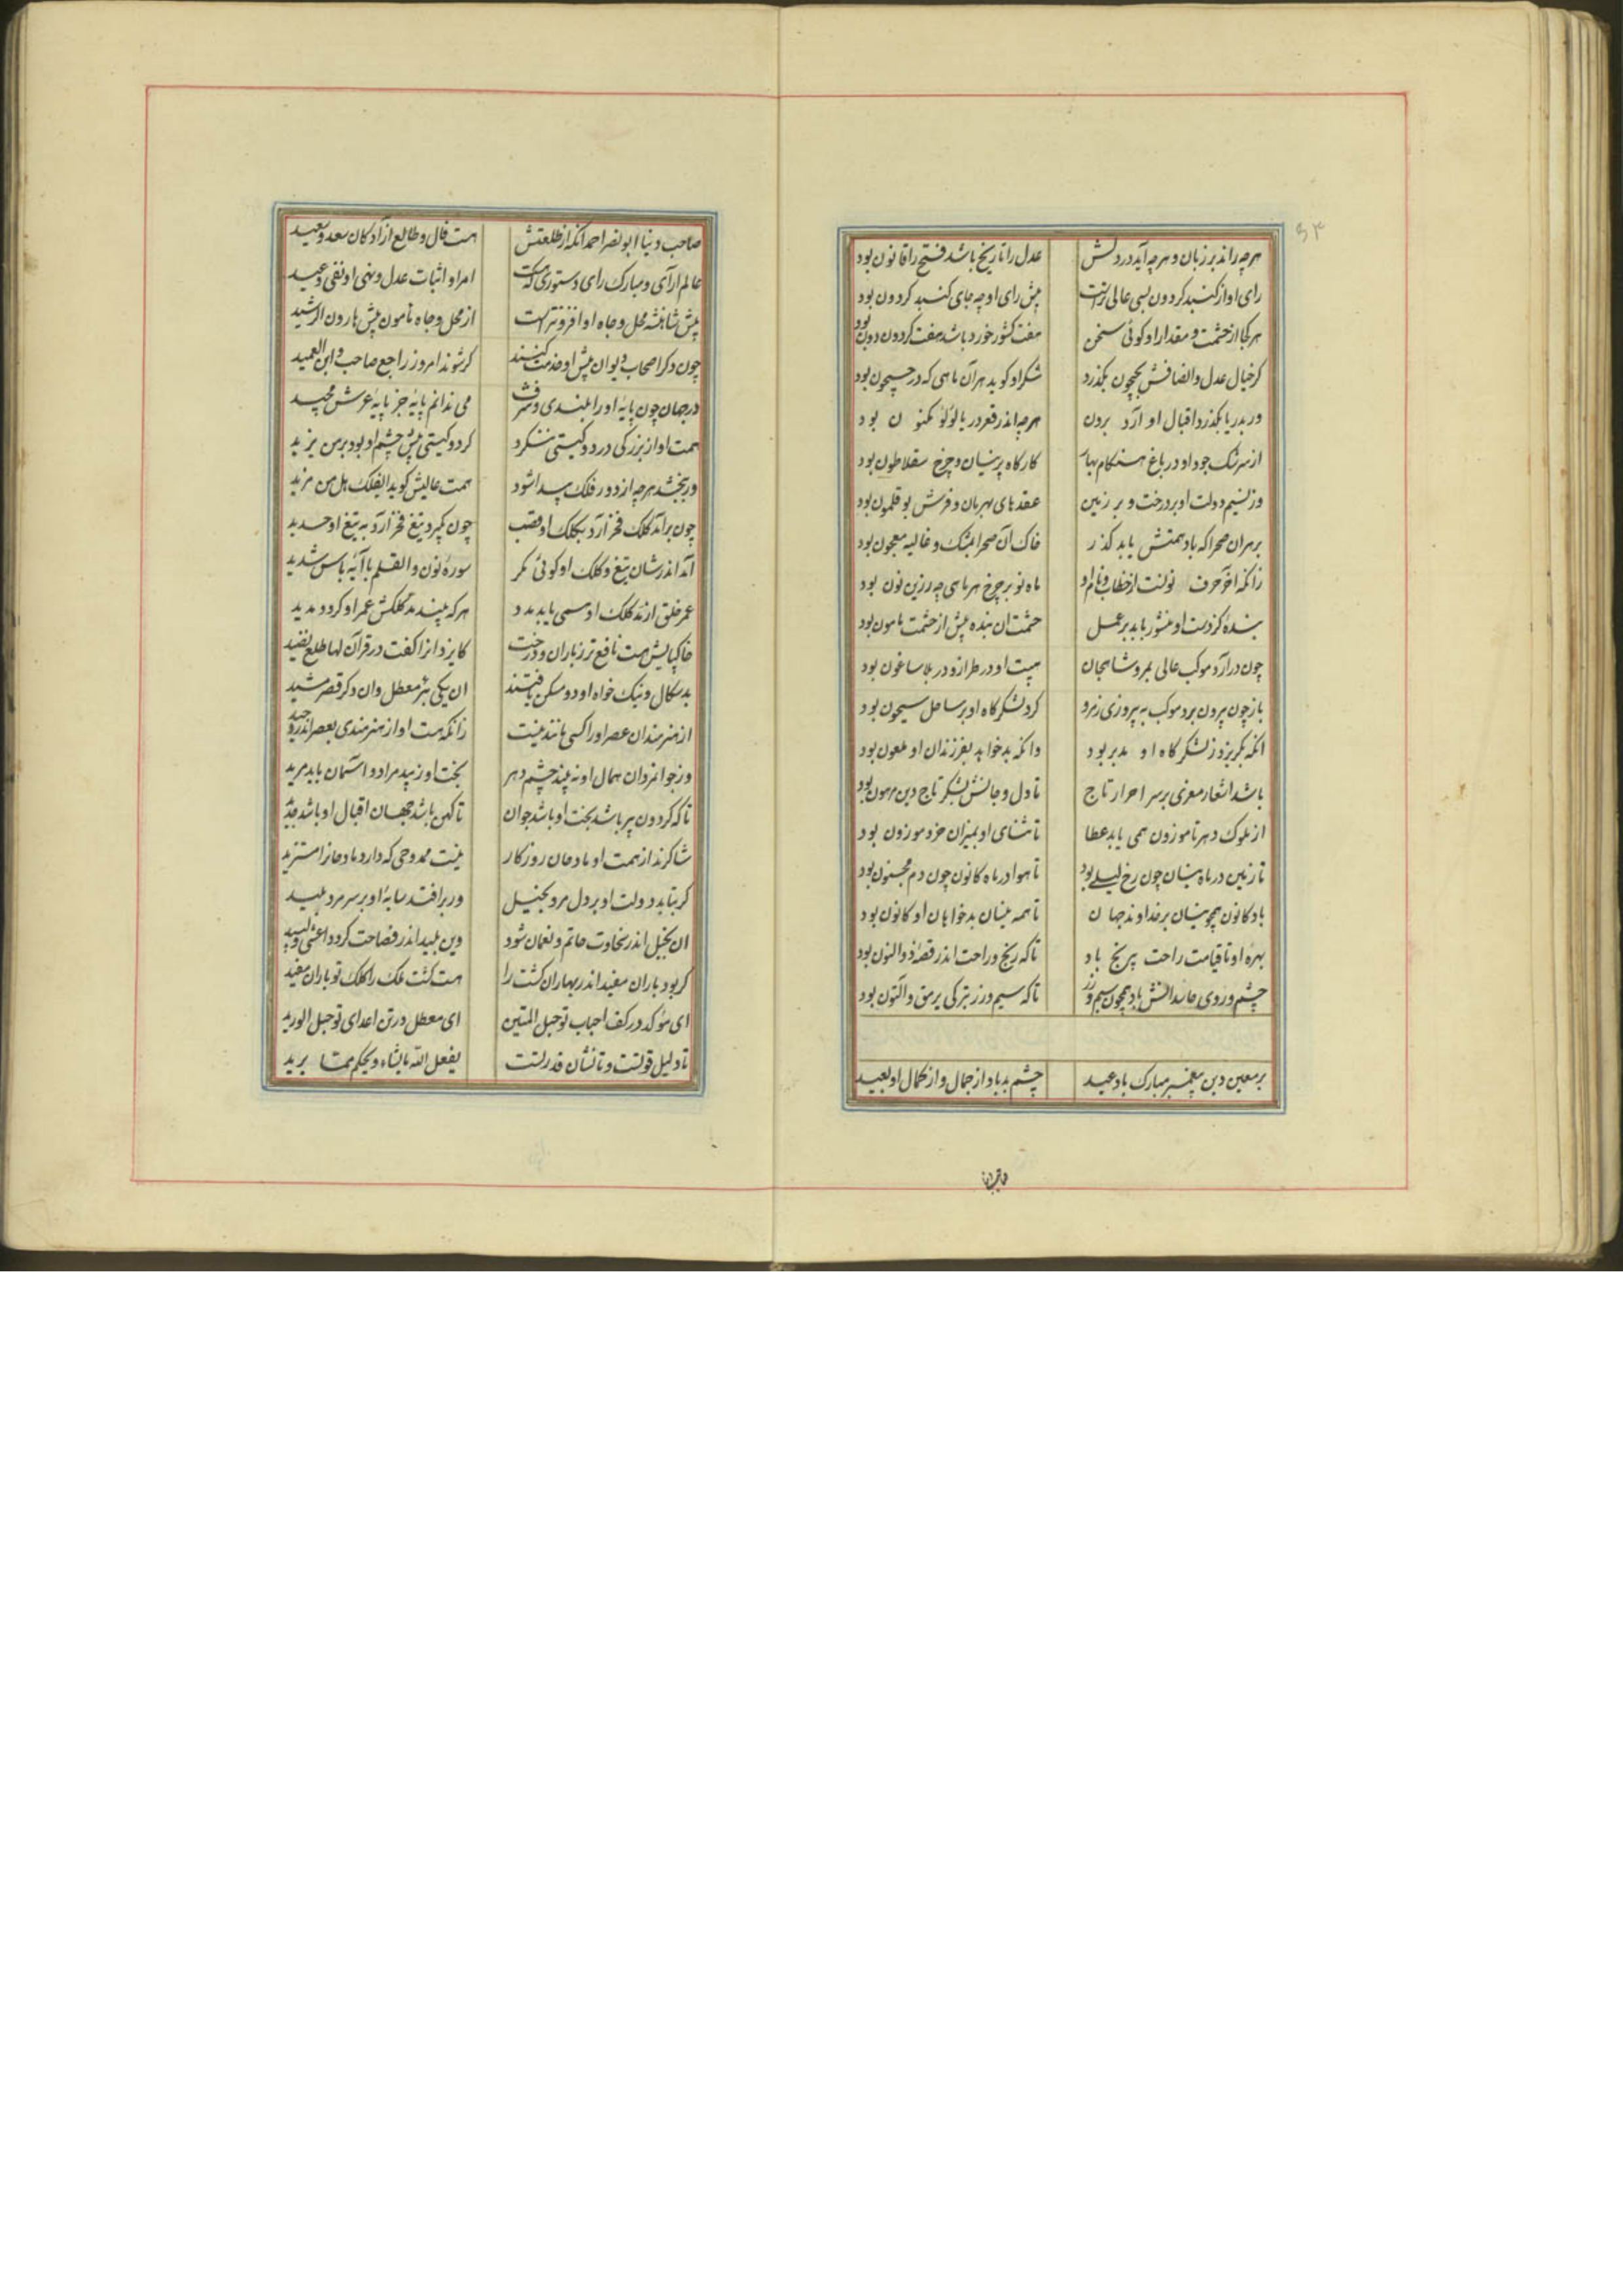 ۶۳
هرچه راند بر زبان و هرچه آید در دلش عدل را تاریخ باشد فتح را قانون بود
رای او از کنبد کردون بسی عالی‌ترست پیش رای او چه جای کنبد کردون بود
هر کجا از حشمت و مقدار او کوئی سخن هفت کشور خورد باشد هفت کردون دون بود
کر خیال عدل و انصافش بجیحون بکذرد شکر او کوید هر آن ماهی که در جیحون بود
ور بدریا بکذرد اقبال او آرد برون هرچه اندر قعر دریا لؤلؤ مکنون بود
از سرشک جود او در باغ هنکام بهار کارکاه پرنیان و چرخ سقلاطون بود
وز نسیم دولت او بر درخت و بر زمین عقدهای بهرمان و فرش بوقلمون بود
بر هران صحرا که باد همتش یابد کذر خاک آن صحرا بمشک و غالیه معجون بود
زانکه آخر حرف نونست از خطاب و نام او ماه نو بر چرخ هر ماهی چه زرین نون بود
بندهٔ کز دست او منشور یابد بر عمل حشمت ان بنده پیش از حشمت مامون بود
چون درآرد موکب عالی بمرو شاهجان هیبت او در طراز و در بلاساغون بود
باز چون بیرون برد موکب به پیروزی ز مرو کرد لشکرگاه او بر ساحل سیحون بود
انکه بکریزد ز لشکرگاه او مدبر بود وانکه بد خواهد بفرزندان او ملعون بود
باشد اشعار معزی بر سر احرار تاج تا دل و جانش بشکر تاج دین مرهون بود
از ملوک دهر ناموزون همی یابد عطا تا ثنای او بمیزان خرد موزون بود
تا زمین در ماه نیسان چون رخ لیلی بود تا هوا در ماه کانون چون دم مجنون بود
باد کانون همچو نیسان بر خداوند جهان تا همه نیسان بدخواهان او کانون بود
بهرهٔ او تا قیامت راحت بیرنج باد تا که رنج و راحت اندر قصهٔ ذوالنون بود
چشم و روی حاسدانش باد همچون سیم و زر تا که سیم و زر بترکی یرمق و التون بود
بر معین دین پیغمبر مبارک باد عید چشم بد باد از جمال و از کمال او بعید
صاحب دنیا ابونصر احمد انکه از طلعتش هست فال و طالع ازادکان سعد و سعید
عالم آرای و مبارک رای دستوری که هست امر او اثبات عدل و نهی او نفی وعید
پیش شاهنشه محل و جاه او افزونتر است از محل و جاه مامون پیش هارون الرشید
چون دکر اصحاب دیوان پیش او خدمت کنند کر شوند امروز راجع صاحب و ابن العمید
در جهان چون پایهٔ او را بلندی و شرف می ندانم پایهٔ جز پایهٔ عرش مجید
همت او از بزرکی در دو کیتی ننکرد کر دو کیتی پیش چشم او بود بر من یزید
ور ببخشد هرچه از دور فلک پیدا شود همت عالیش کوید ایفلک هل من مزید
چون برآمد کلک فخر آرد بکلک او قصب چون بکیرد تیغ فخر آرد به تیغ او حدید
آمد اندر شان تیغ و کلک او کوئی مکر سورهٔ نون والقلم با آیهٔ باس شدید
عمر خلق از مد کلک او همی یابد مدد هر که بیند مد کلکش عمر او کردد مدید
خاکپایش هست نافع تر ز باران و درخت کایزد انرا کفت در قرآن لها طلع نضید
بدسکال و نیک خواه او دو مسکن یافتند ان یکی بئر معطل وان دکر قصر مشید
از هنرمندان عصر او را کسی مانند نیست زانکه هست او از هنرمندی بعصر اندر وحید
وز جوانمردان همال او نه بیند چشم دهر بخت او زیبد مراد و آسمان باید مرید
تا که کردون پیر باشد بخت او باشد جوان تا کهن باشد جهان اقبال او باشد جدید
شاکرند از همت او مادحان روزکار نیست ممدوحی که دارد مادحانرا مستزید
کر بتابد دولت او بر دل مرد بخیل ور برافتد سایهٔ او بر سر مرد بلید
ان بخیل اندر سخاوت حاتم و نعمان شود وین بلید اندر فصاحت کردد اعشی و لبید
کر بود باران مفید اندر بهاران کشت را هست کشت ملک را کلک تو باران مفید
ای مؤکد در کف احباب تو حبل المتین ای معطل در تن اعدای تو حبل الورید
تا دلیل قوتست و تا نشان قدرتست یفعل الله ما یشاء و یحکم ما یرید